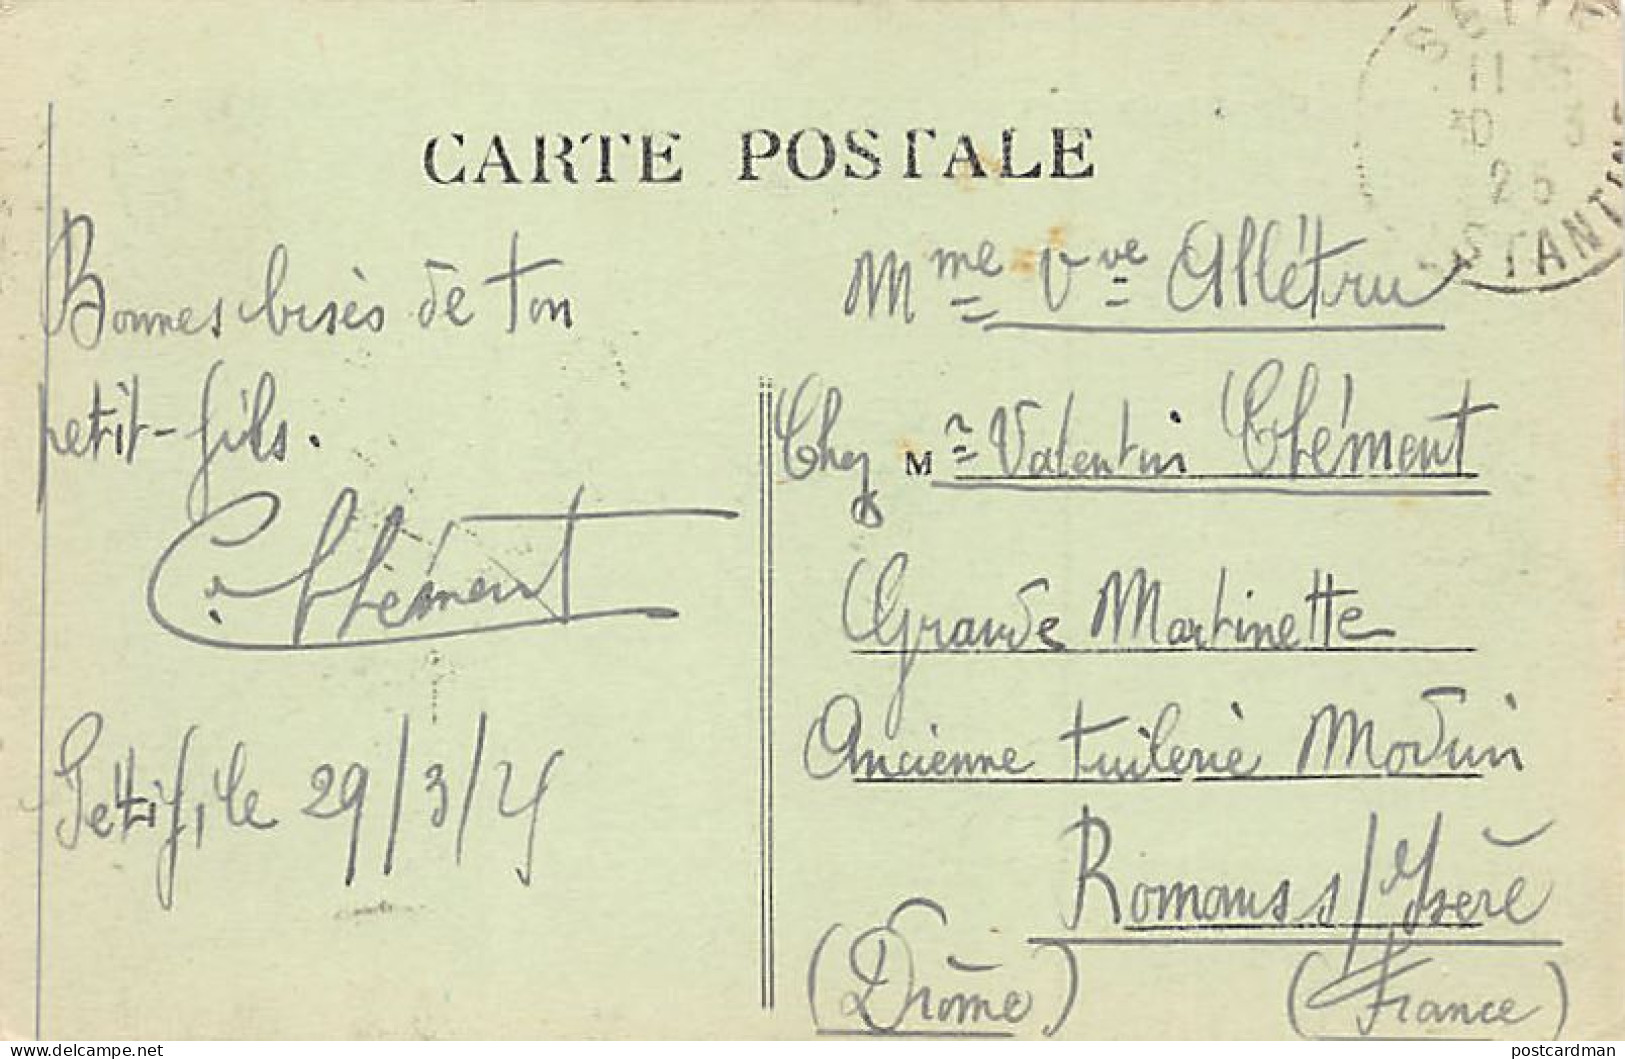 CARTE POSTALE
11
30 3
25
STANTIN
Bonnes bises de ton
petit-fils.
C. Clément
Sétif, le 29/3/25
Mme Vve Allétru
Chez Mr Valentin Clément
Grande Martinette
Ancienne tuilerie Moduin
Romans s/Isère
(Drôme) (France)
postcardman